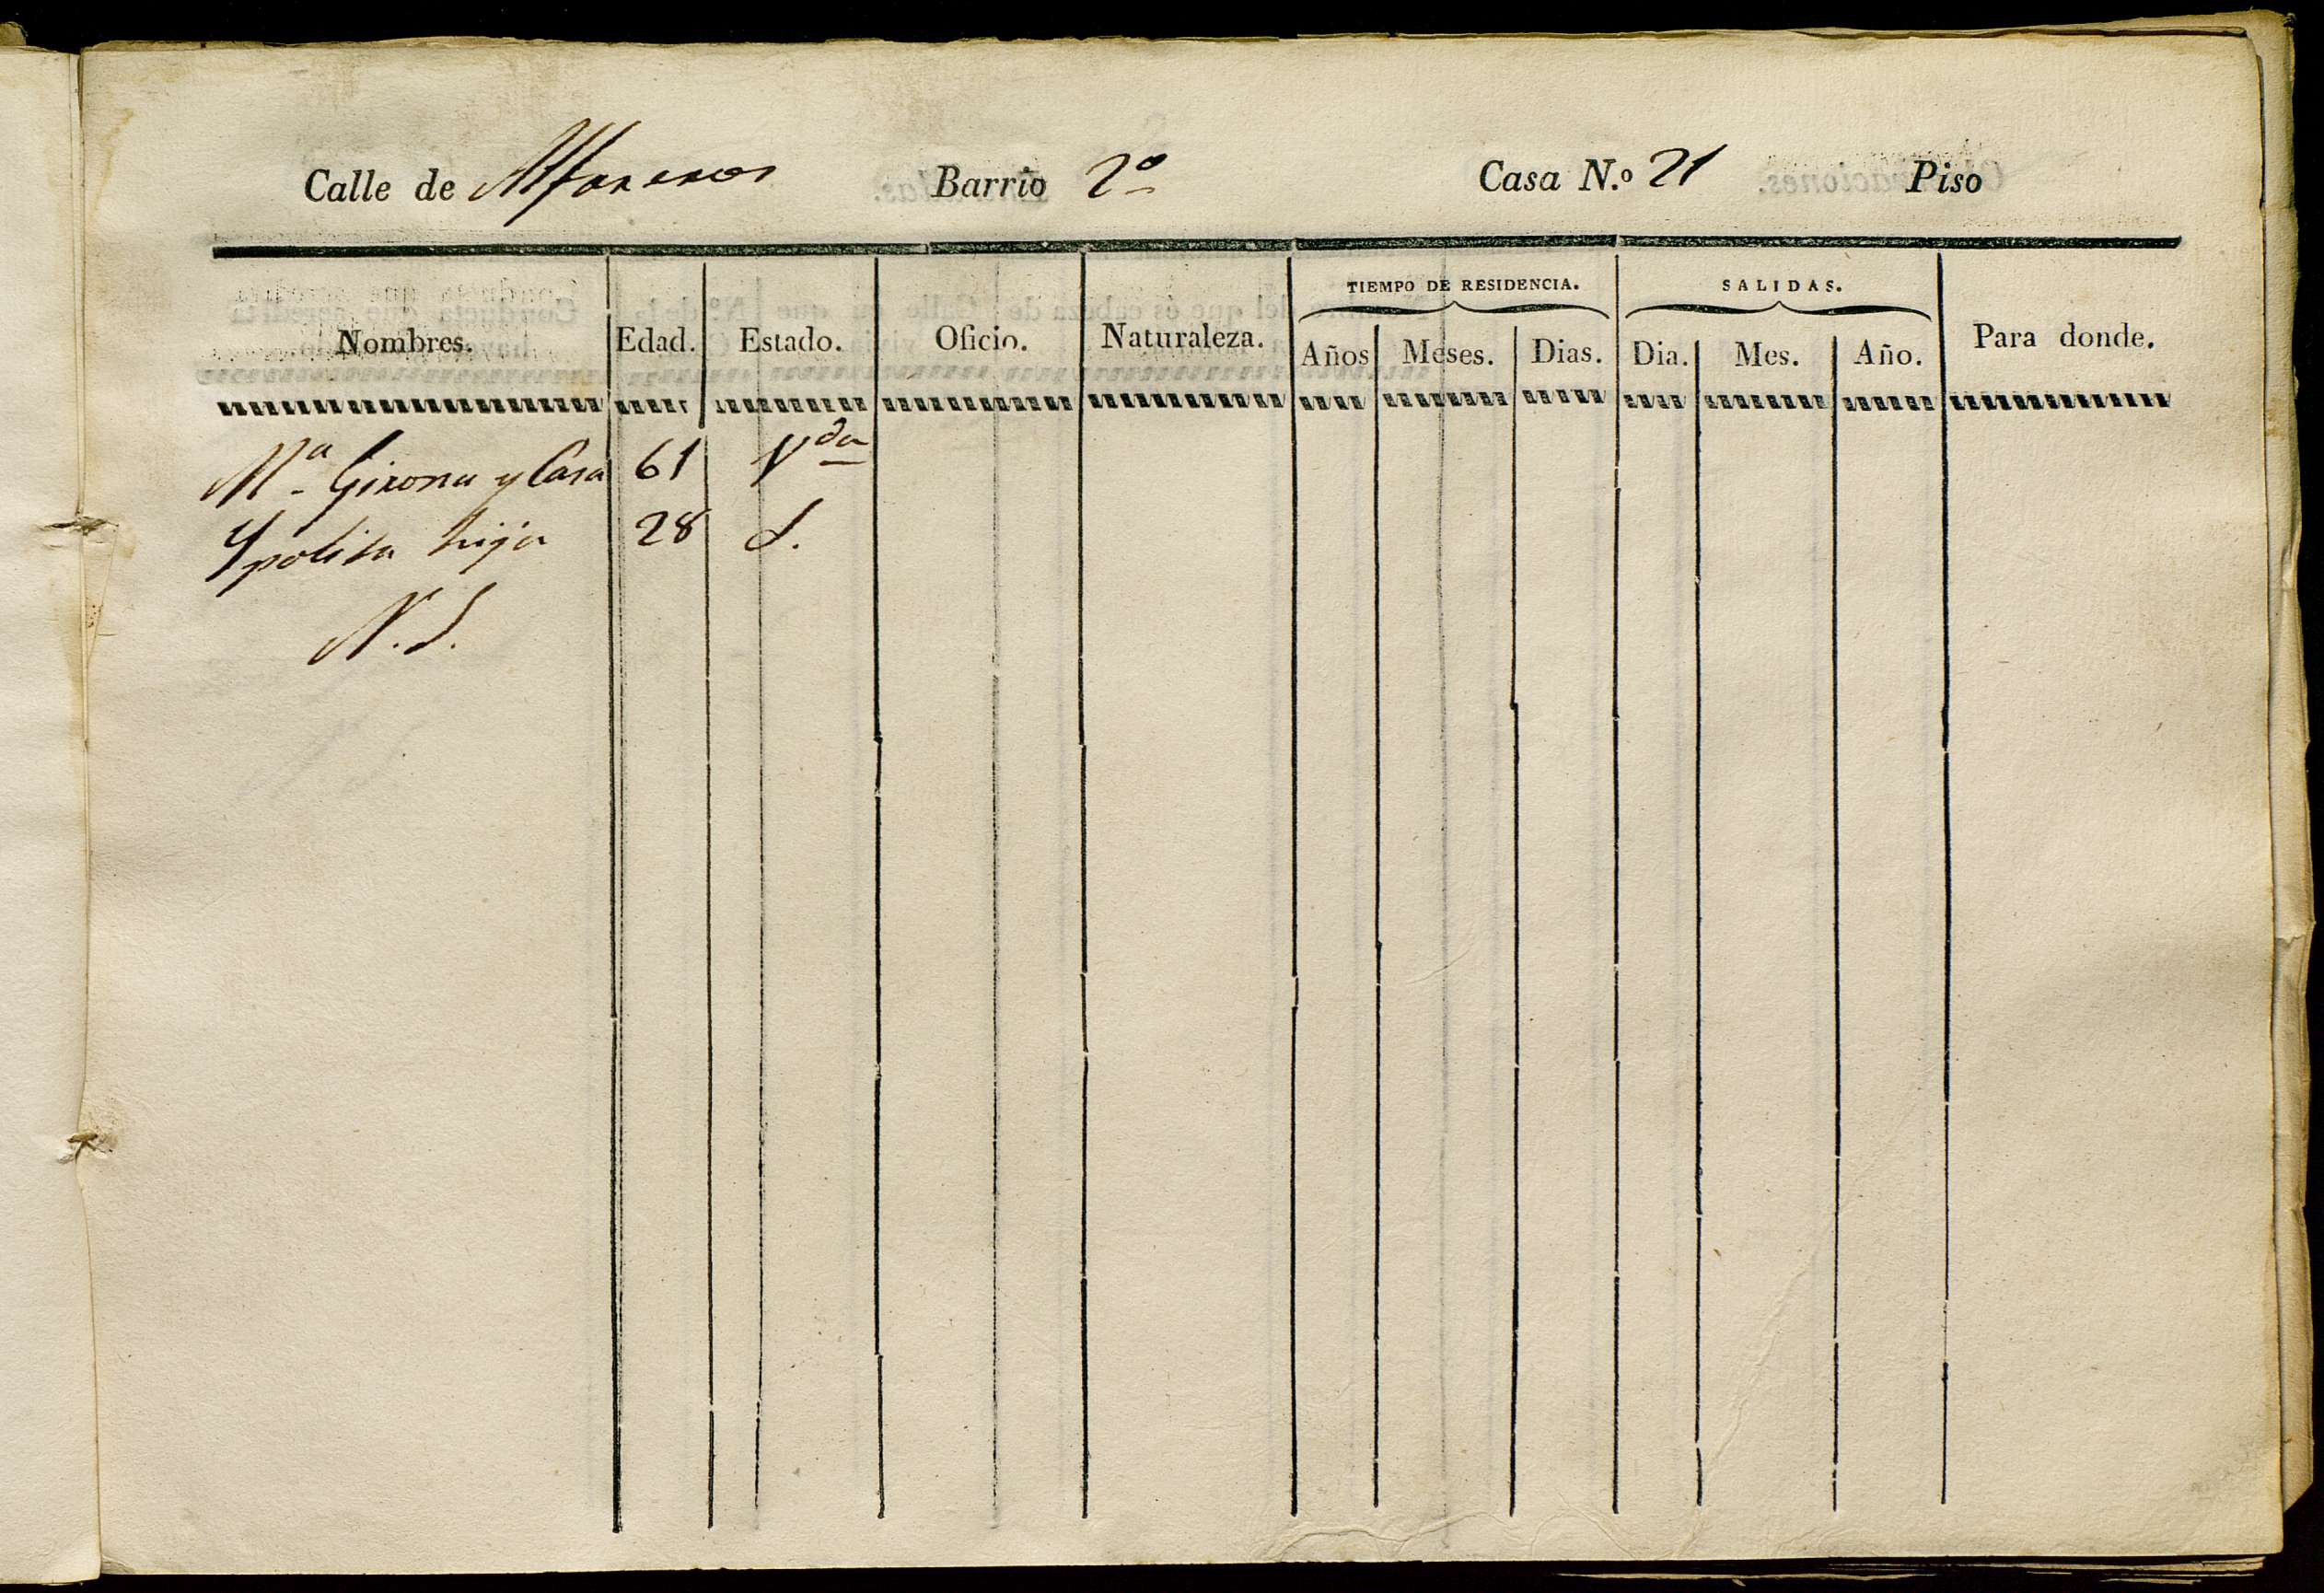 Calle de Alfareros Barrio 2º Casa N.º 21 Piso
TIEMPO DE RESIDENCIA. SALIDAS.
Nombres. Edad. Estado. Oficio. Naturaleza. Años Meses. Dias. Dia. Mes. Año. Para donde.
Mª Girona y Casa 61 Vda
Ypolita hija 28 S.
N. S.